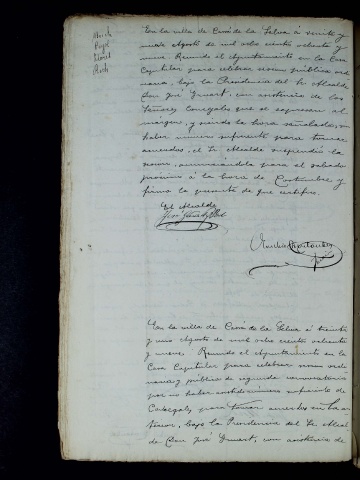 En la villa de Cassá de la Selva á veinte y
nueve Agosto de mil ocho cientos ochenta y
nueve. Reunido el Ayuntamiento en la Casa
Capitular para celebrar sesion pública ordi
naria, bajo la Presidencia del Sr. Alcalde
Don José, con asistencia de los
Señores Concejales que se expresan al
margen, y siendo la hora señalada, sin
haber número suficiente para tomar
acuerdos, el Sr. Alcalde suspendió la
sesion, anunciándola para el sabado
próximo á la hora de Costumbre y
firma la presente de que certifico.
El Alcalde
José
En la villa de Cassá de la Selva á treinta
y uno Agosto de mil ocho cientos ochenta
y nueve. Reunido el Ayuntamiento en la
Casa Capitular para celebrar sesion ordi
naria y pública de segunda convocatoria
por no haber asistido número suficiente de
Concejales para tomar acuerdos en la an
terior, bajo la Presidencia del Sr. Alcal
de Don José, con asistencia de